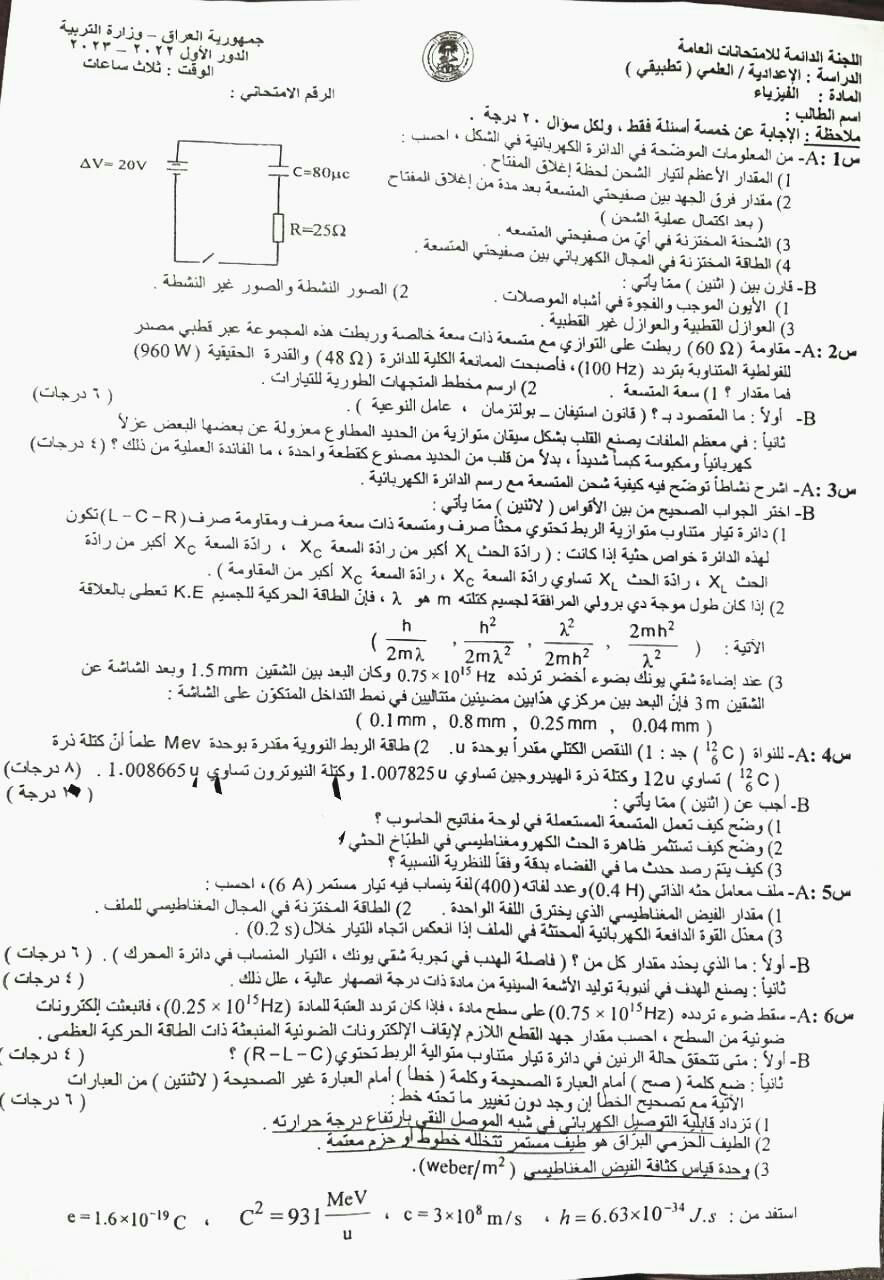 جمهورية العراق – وزارة التربية
الدور الأول ٢٠٢٢ – ٢٠٢٣
الوقت : ثلاث ساعات
الرقم الامتحاني :
اللجنة الدائمة للامتحانات العامة
الدراسة : الإعدادية / العلمي ( تطبيقي )
المادة : الفيزياء
اسم الطالب :
ملاحظة : الإجابة عن خمسة أسئلة فقط ، ولكل سؤال ٢٠ درجة .
س1 :A- من المعلومات الموضحة في الدائرة الكهربائية في الشكل ، احسب :
1) المقدار الأعظم لتيار الشحن لحظة إغلاق المفتاح .
2) مقدار فرق الجهد بين صفيحتي المتسعة بعد مدة من إغلاق المفتاح
( بعد اكتمال عملية الشحن )
3) الشحنة المختزنة في أيّ من صفيحتي المتسعه .
4) الطاقة المختزنة في المجال الكهربائي بين صفيحتي المتسعة .
ΔV= 20V
C=80μc
R=25Ω
B- قارن بين ( اثنين ) ممّا يأتي :
1) الأيون الموجب والفجوة في أشباه الموصلات . 2) الصور النشطة والصور غير النشطة .
3) العوازل القطبية والعوازل غير القطبية .
س2 :A- مقاومة (60 Ω) ربطت على التوازي مع متسعة ذات سعة خالصة وربطت هذه المجموعة عبر قطبي مصدر
للفولطية المتناوبة بتردد (100 Hz)، فأصبحت الممانعة الكلية للدائرة (48 Ω) والقدرة الحقيقية (960 W)
فما مقدار ؟ 1) سعة المتسعة . 2) ارسم مخطط المتجهات الطورية للتيارات .
B- أولاً : ما المقصود بـ ؟ ( قانون استيفان – بولتزمان ، عامل النوعية ) . ( ٦ درجات)
ثانياً : في معظم الملفات يصنع القلب بشكل سيقان متوازية من الحديد المطاوع معزولة عن بعضها البعض عزلاً
كهربائياً ومكبوسة كبساً شديداً ، بدلاً من قلب من الحديد مصنوع كقطعة واحدة ، ما الفائدة العملية من ذلك ؟ ( ٤ درجات)
س3 :A- اشرح نشاطاً توضّح فيه كيفية شحن المتسعة مع رسم الدائرة الكهربائية .
B- اختر الجواب الصحيح من بين الأقواس ( لاثنين ) ممّا يأتي :
1) دائرة تيار متناوب متوازية الربط تحتوي محثاً صرف ومتسعة ذات سعة صرف ومقاومة صرف (L – C – R) تكون
لهذه الدائرة خواص حثية إذا كانت : ( رادّة الحث XL أكبر من رادّة السعة XC ، رادّة السعة XC أكبر من رادّة
الحث XL ، رادّة الحث XL تساوي رادّة السعة XC ، رادّة السعة XC أكبر من المقاومة ) .
2) إذا كان طول موجة دي برولي المرافقة لجسيم كتلته m هو λ ، فإنّ الطاقة الحركية للجسيم K.E تعطى بالعلاقة
الآتية : ( 2mh²/λ² , λ²/2mh² , h²/2mλ² , h/2mλ )
3) عند إضاءة شقي يونك بضوء أخضر تردّده 0.75 × 10¹⁵ Hz وكان البعد بين الشقين 1.5 mm وبعد الشاشة عن
الشقين 3 m فإنّ البعد بين مركزي هذابين مضيئين متتاليين في نمط التداخل المتكوّن على الشاشة :
( 0.1 mm , 0.8 mm , 0.25 mm , 0.04 mm )
س4 :A- للنواة ( ¹²₆C ) جد : 1) النقص الكتلي مقدراً بوحدة u. 2) طاقة الربط النووية مقدرة بوحدة Mev علماً أنّ كتلة ذرة
( ¹²₆C ) تساوي 12u وكتلة ذرة الهيدروجين تساوي 1.007825 u وكتلة النيوترون تساوي 1.008665 u . ( ٨ درجات)
B- أجب عن ( اثنين ) ممّا يأتي :
1) وضّح كيف تعمل المتسعة المستعملة في لوحة مفاتيح الحاسوب ؟
2) وضح كيف تستثمر ظاهرة الحث الكهرومغناطيسي في الطبّاخ الحثي ؟
3) كيف يتمّ رصد حدث ما في الفضاء بدقة وفقاً للنظرية النسبية ؟
س5 :A- ملف معامل حثه الذاتي (0.4 H) وعدد لفاته (400) لفة ينساب فيه تيار مستمر (6 A)، احسب :
1) مقدار الفيض المغناطيسي الذي يخترق اللفة الواحدة . 2) الطاقة المختزنة في المجال المغناطيسي للملف .
3) معدّل القوة الدافعة الكهربائية المحتثّة في الملف إذا انعكس اتجاه التيار خلال (0.2 s) .
B- أولاً : ما الذي يحدّد مقدار كل من ؟ ( فاصلة الهدب في تجربة شقي يونك ، التيار المنساب في دائرة المحرك ) . ( ٦ درجات )
ثانياً : يصنع الهدف في أنبوبة توليد الأشعة السينية من مادة ذات درجة انصهار عالية ، علل ذلك . ( ٤ درجات )
س6 :A- سقط ضوء تردده (0.75 × 10¹⁵Hz) على سطح مادة ، فإذا كان تردد العتبة للمادة (0.25 × 10¹⁵Hz)، فانبعثت إلكترونات
ضوئية من السطح ، احسب مقدار جهد القطع اللازم لإيقاف الإلكترونات الضوئية المنبعثة ذات الطاقة الحركية العظمى .
B- أولاً : متى تتحقق حالة الرنين في دائرة تيار متناوب متوالية الربط تحتوي (R – L – C) ؟ ( ٤ درجات )
ثانياً : ضع كلمة ( صح ) أمام العبارة الصحيحة وكلمة ( خطأ ) أمام العبارة غير الصحيحة ( لاثنتين ) من العبارات
الآتية مع تصحيح الخطأ إن وجد دون تغيير ما تحته خط : ( ٦ درجات )
1) تزداد قابلية التوصيل الكهربائي في شبه الموصل النقي بارتفاع درجة حرارته .
2) الطيف الحزمي البرّاق هو طيف مستمر تتخلله خطوط أو حزم معتمة .
3) وحدة قياس كثافة الفيض المغناطيسي (weber/m²).
استفد من : h = 6.63×10⁻³⁴ J.s ، c = 3×10⁸ m/s ، C² = 931 MeV/u ، e = 1.6×10⁻¹⁹ C